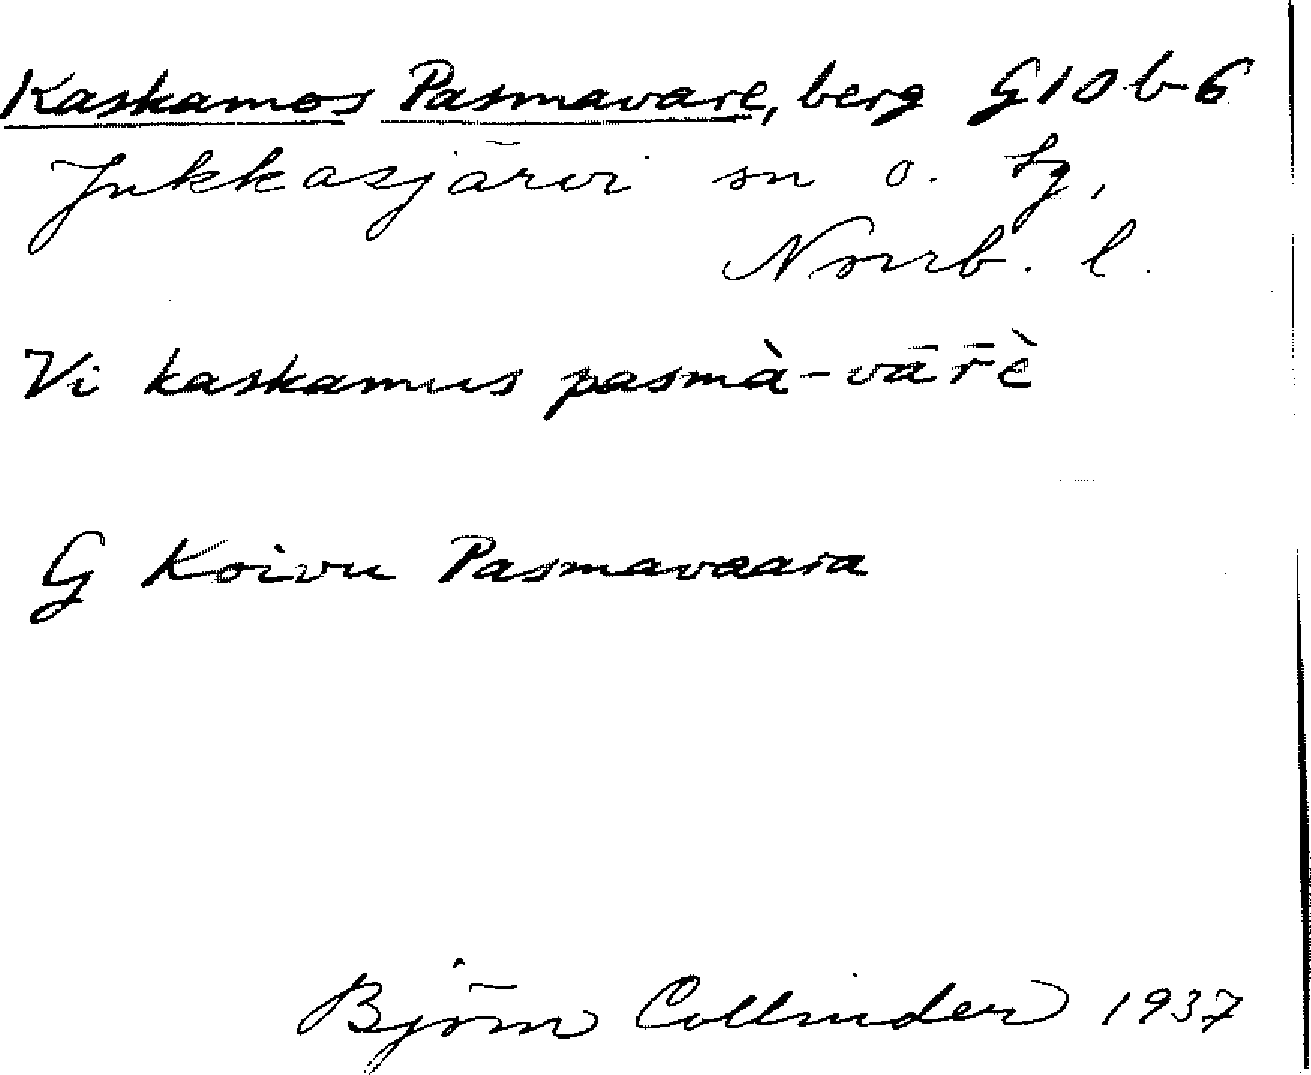 Kaskamos Pasmavare, berg G10b6
Jukkasjärvi sn o. tg,
Norrb. l.
Vi kaskamus pasmà-vār̄è
G Koivu Pasmavaara
Björn Collinder 1937